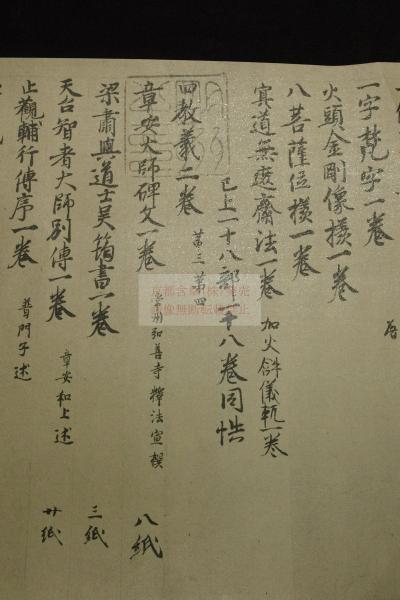 一字梵字一卷
火頭金剛像様一卷
八菩薩位様一卷
冥道無遮齋法一卷 加火𨦟儀軌一卷
已上一十八部一十八卷同帙
四教義二卷 第三第四
章安大師碑文一卷 常州和善寺釋法宣撰 八紙
梁肅與道士吴筠書一卷 三紙
天台智者大師別傳一卷 章安和上述 廿紙
止觀輔行傳序一卷 普門子述